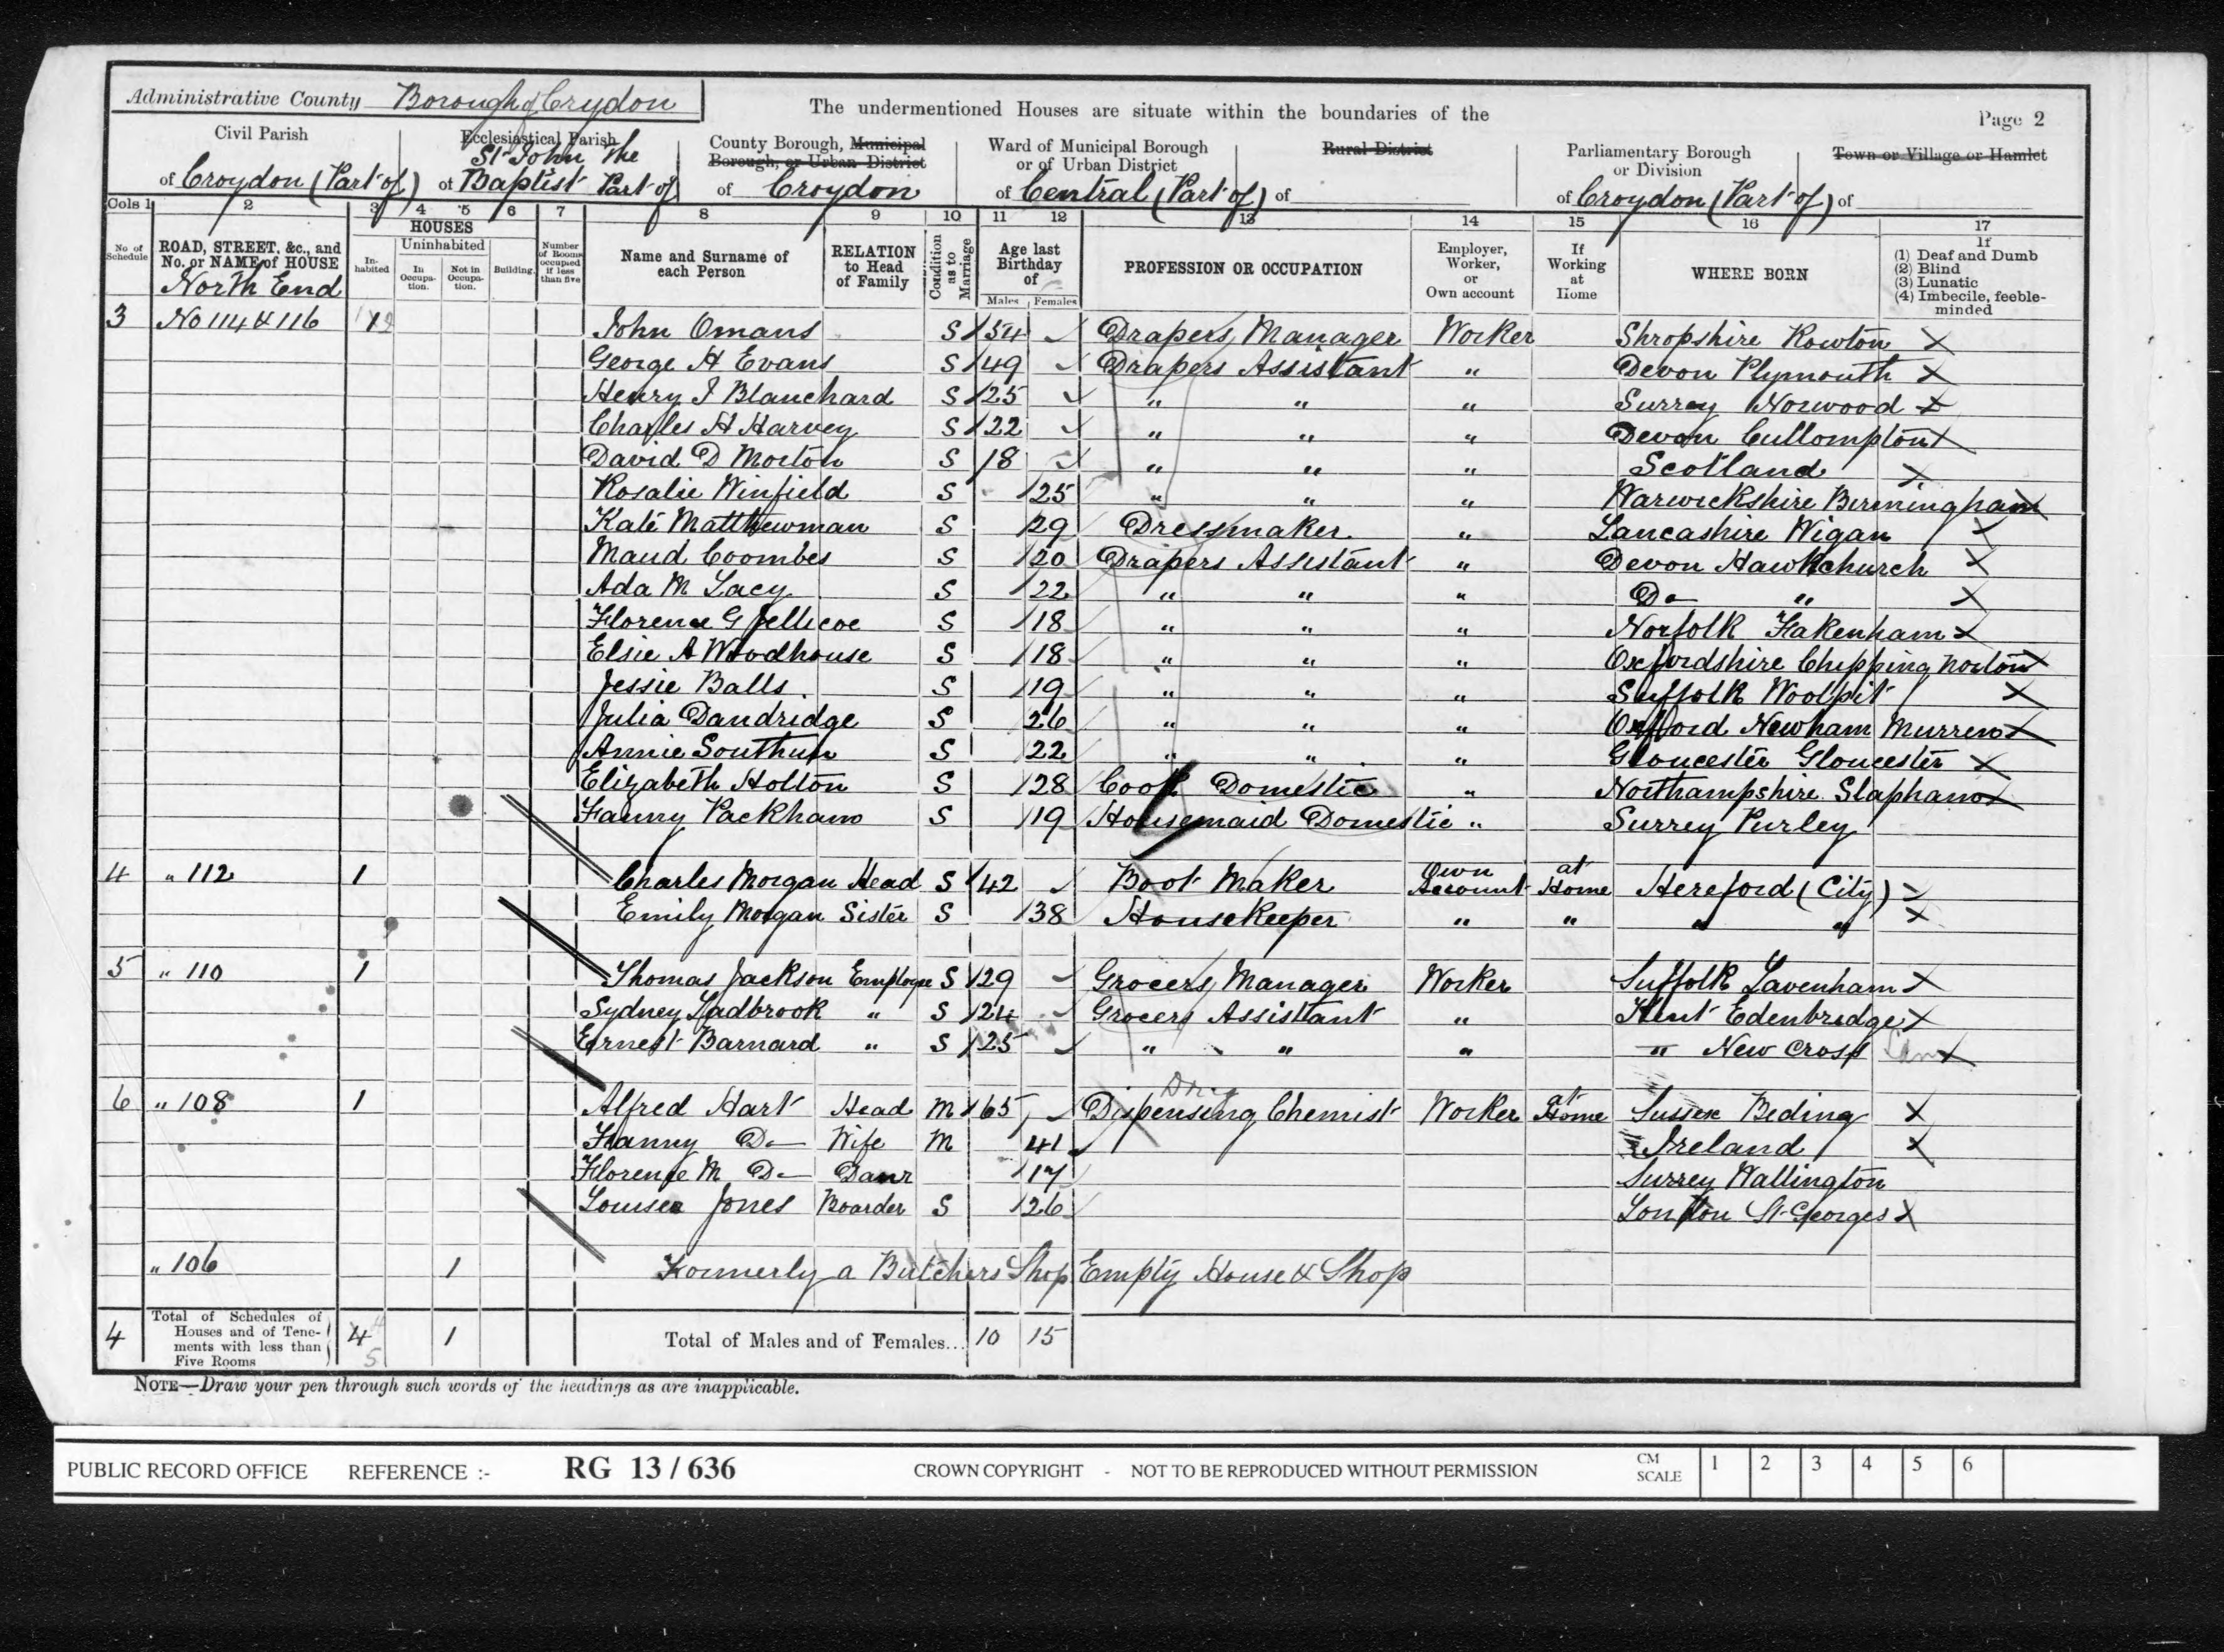 Administrative County Borough of Croydon
The undermentioned Houses are situate within the boundaries of the
Page 2
Civil Parish
of Croydon (Part of)
Ecclesiastical Parish
St John the
of Baptist Part of
County Borough, Municipal
Borough, or Urban District
of Croydon
Ward of Municipal Borough
or of Urban District
of Central (Part of)
Rural District
of
Parliamentary Borough
or Division
of Croydon (Part of)
Town or Village or Hamlet
of
Cols 1 2 3 4 5 6 7 8 9 10 11 12 13 14 15 16 17
No of Schedule
ROAD, STREET, &c., and No. or NAME of HOUSE
North End
HOUSES
Inhabited
Uninhabited
In Occupation.
Not in Occupation.
Building
Number of Rooms occupied if less than five
Name and Surname of each Person
RELATION to Head of Family
Condition as to Marriage
Age last Birthday of
Males Females
PROFESSION OR OCCUPATION
Employer, Worker, or Own account
If Working at Home
WHERE BORN
If
(1) Deaf and Dumb
(2) Blind
(3) Lunatic
(4) Imbecile, feeble-minded
3 No 114 & 116 John Omans S 54 Drapers Manager Worker Shropshire Rowton
George H Evans S 49 Drapers Assistant " Devon Plymouth
Henry J Blanchard S 25 " " " Surrey Norwood
Charles H Harvey S 22 " " " Devon Cullompton
David D Morton S 18 " " " Scotland
Rosalie Winfield S 25 " " " Warwickshire Birmingham
Kate Matthewman S 29 Dressmaker " Lancashire Wigan
Maud Coombes S 20 Drapers Assistant " Devon Hawkchurch
Ada M Lacy S 22 " " " Do "
Florence G Jellicoe S 18 " " " Norfolk Fakenham
Elsie A Woodhouse S 18 " " " Oxfordshire Chipping Norton
Jessie Balls S 19 " " " Suffolk Woolpit
Julia Dandridge S 26 " " " Oxford Newham Murren
Annie Southun S 22 " " " Gloucester Gloucester
Elizabeth Holton S 28 Cook Domestic " Northampshire
Fanny Packham S 19 Housemaid Domestic " Surrey Purley
4 " 112 1 Charles Morgan Head S 42 Boot Maker Own Account at Home Hereford (City)
Emily Morgan Sister S 38 Housekeeper " " " "
5 " 110 1 Thomas Jackson Employee S 29 Grocers Manager Worker Suffolk Lavenham
Sydney Ladbrook " S 24 Grocers Assistant " Kent Edenbridge
Ernest Barnard " S 25 " " " " New Cross
6 " 108 1 Alfred Hart Head M 65 Dispensing Chemist Worker at Home Sussex Beding
Fanny Do Wife M 41 Ireland
Florence M Do Daur 17 Surrey Wallington
Louisea Jones Boarder S 26 London St Georges
" 106 1 Formerly a Butchers Shop Empty House & Shop
4 Total of Schedules of Houses and of Tenements with less than Five Rooms 4 1 Total of Males and of Females... 10 15
NOTE—Draw your pen through such words of the headings as are inapplicable.
PUBLIC RECORD OFFICE REFERENCE :- RG 13 / 636 CROWN COPYRIGHT - NOT TO BE REPRODUCED WITHOUT PERMISSION CM SCALE 1 2 3 4 5 6